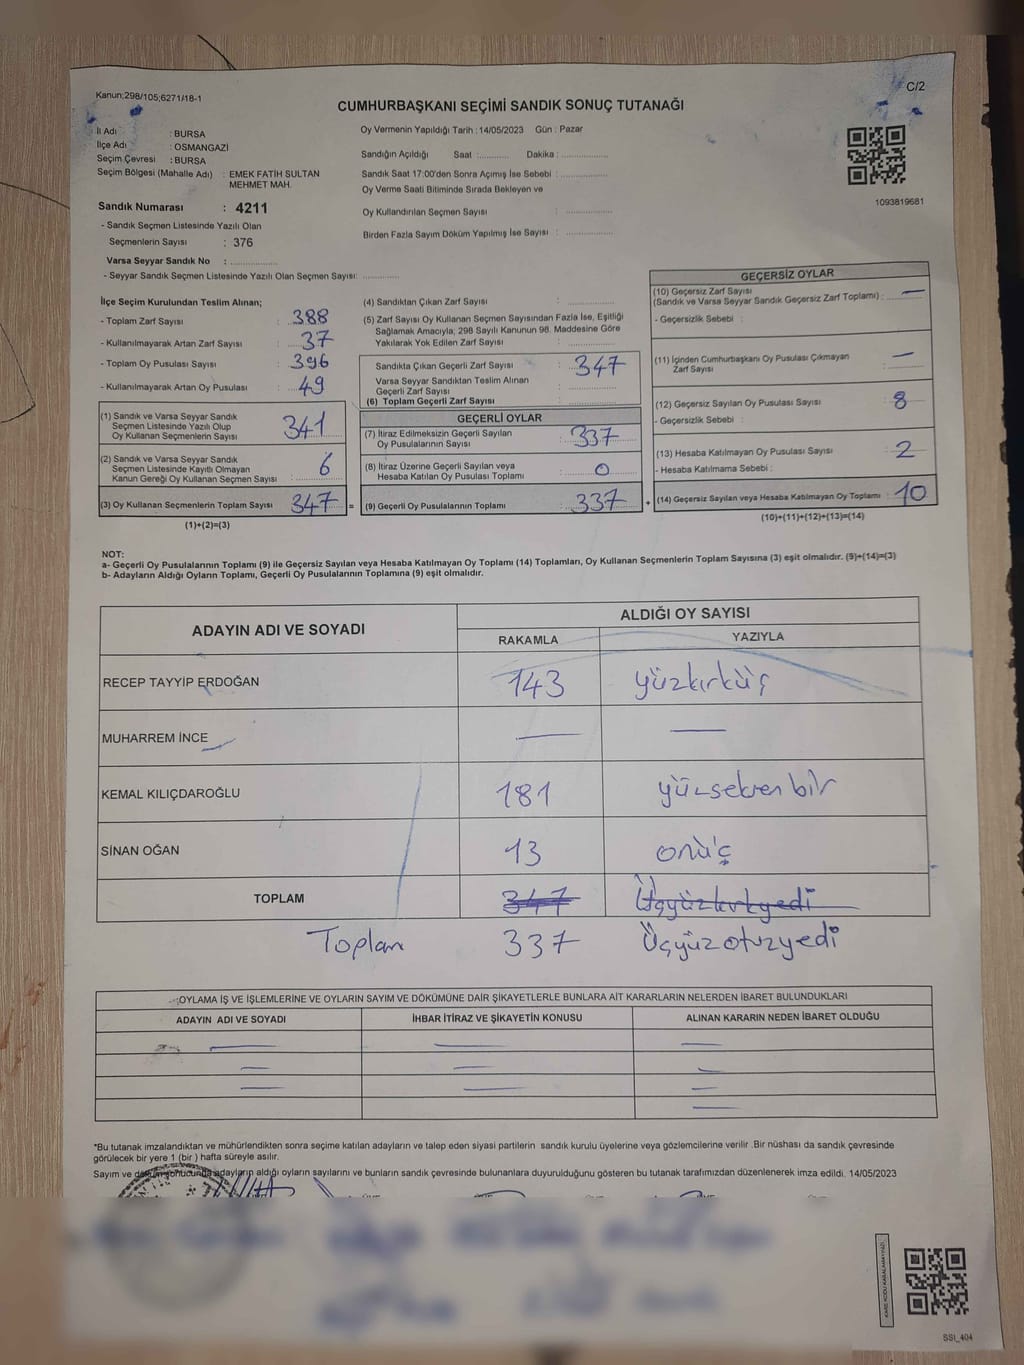 Kanun:298/105;6271/18-1
C/2
CUMHURBAŞKANI SEÇİMİ SANDIK SONUÇ TUTANAĞI
İl Adı : BURSA
İlçe Adı : OSMANGAZİ
Seçim Çevresi : BURSA
Seçim Bölgesi (Mahalle Adı) : EMEK FATİH SULTAN
MEHMET MAH.
Sandık Numarası : 4211
- Sandık Seçmen Listesinde Yazılı Olan
Seçmenlerin Sayısı : 376
Varsa Seyyar Sandık No :
- Seyyar Sandık Seçmen Listesinde Yazılı Olan Seçmen Sayısı:
Oy Vermenin Yapıldığı Tarih : 14/05/2023 Gün : Pazar
Sandığın Açıldığı Saat : Dakika :
Sandık Saat 17:00'den Sonra Açılmış İse Sebebi :
Oy Verme Saati Bitiminde Sırada Bekleyen ve
Oy Kullandırılan Seçmen Sayısı :
Birden Fazla Sayım Döküm Yapılmış İse Sayısı :
1093819681
İlçe Seçim Kurulundan Teslim Alınan;
- Toplam Zarf Sayısı : 388
- Kullanılmayarak Artan Zarf Sayısı : 37
- Toplam Oy Pusulası Sayısı : 396
- Kullanılmayarak Artan Oy Pusulası : 49
(1) Sandık ve Varsa Seyyar Sandık
Seçmen Listesinde Yazılı Olup
Oy Kullanan Seçmenlerin Sayısı : 341
(2) Sandık ve Varsa Seyyar Sandık
Seçmen Listesinde Kayıtlı Olmayan
Kanun Gereği Oy Kullanan Seçmen Sayısı : 6
(3) Oy Kullanan Seçmenlerin Toplam Sayısı : 347 =
(1)+(2)=(3)
(4) Sandıktan Çıkan Zarf Sayısı :
(5) Zarf Sayısı Oy Kullanan Seçmen Sayısından Fazla İse, Eşitliği
Sağlamak Amacıyla, 298 Sayılı Kanunun 98. Maddesine Göre
Yakılarak Yok Edilen Zarf Sayısı :
Sandıkta Çıkan Geçerli Zarf Sayısı : 347
Varsa Seyyar Sandıktan Teslim Alınan
Geçerli Zarf Sayısı :
(6) Toplam Geçerli Zarf Sayısı :
GEÇERLİ OYLAR
(7) İtiraz Edilmeksizin Geçerli Sayılan
Oy Pusulalarının Sayısı : 337
(8) İtiraz Üzerine Geçerli Sayılan veya
Hesaba Katılan Oy Pusulası Toplamı : 0
(9) Geçerli Oy Pusulalarının Toplamı : 337 +
GEÇERSİZ OYLAR
(10) Geçersiz Zarf Sayısı
(Sandık ve Varsa Seyyar Sandık Geçersiz Zarf Toplamı) : —
- Geçersizlik Sebebi :
(11) İçinden Cumhurbaşkanı Oy Pusulası Çıkmayan
Zarf Sayısı : —
(12) Geçersiz Sayılan Oy Pusulası Sayısı : 8
- Geçersizlik Sebebi :
(13) Hesaba Katılmayan Oy Pusulası Sayısı : 2
- Hesaba Katılmama Sebebi :
(14) Geçersiz Sayılan veya Hesaba Katılmayan Oy Toplamı : 10
(10)+(11)+(12)+(13)=(14)
NOT:
a- Geçerli Oy Pusulaları Toplamı (9) ile Geçersiz Sayılan veya Hesaba Katılmayan Oy Toplamı (14) Toplamları, Oy Kullanan Seçmenlerin Toplam Sayısına (3) eşit olmalıdır. (9)+(14)=(3)
b- Adayların Aldığı Oyların Toplamı, Geçerli Oy Pusulalarının Toplamına (9) eşit olmalıdır.
ADAYIN ADI VE SOYADI
ALDIĞI OY SAYISI
RAKAMLA YAZIYLA
RECEP TAYYİP ERDOĞAN 143 yüzkırküç
MUHARREM İNCE — —
KEMAL KILIÇDAROĞLU 181 yüzseksen bir
SİNAN OĞAN 13 onüç
TOPLAM 347 Üçyüzkırkyedi
Toplam 337 Üçyüzotuzyedi
OYLAMA İŞ VE İŞLEMLERİNE VE OYLARIN SAYIM VE DÖKÜMÜNE DAİR ŞİKAYETLERLE BUNLARA AİT KARARLARIN NELERDEN İBARET BULUNDUKLARI
ADAYIN ADI VE SOYADI İHBAR İTİRAZ VE ŞİKAYETİN KONUSU ALINAN KARARIN NEDEN İBARET OLDUĞU
*Bu tutanak imzalandıktan ve mühürlendikten sonra seçime katılan adayların ve talep eden siyasi partilerin sandık kurulu üyelerine veya gözlemcilerine verilir .Bir nüshası da sandık çevresinde
görülecek bir yere 1 (bir ) hafta süreyle asılır.
Sayım ve döküm sonucunda adayların aldığı oyların sayılarını ve bunların sandık çevresinde bulunanlara duyurulduğunu gösteren bu tutanak tarafımızdan düzenlenerek imza edildi. 14/05/2023
SSI_404